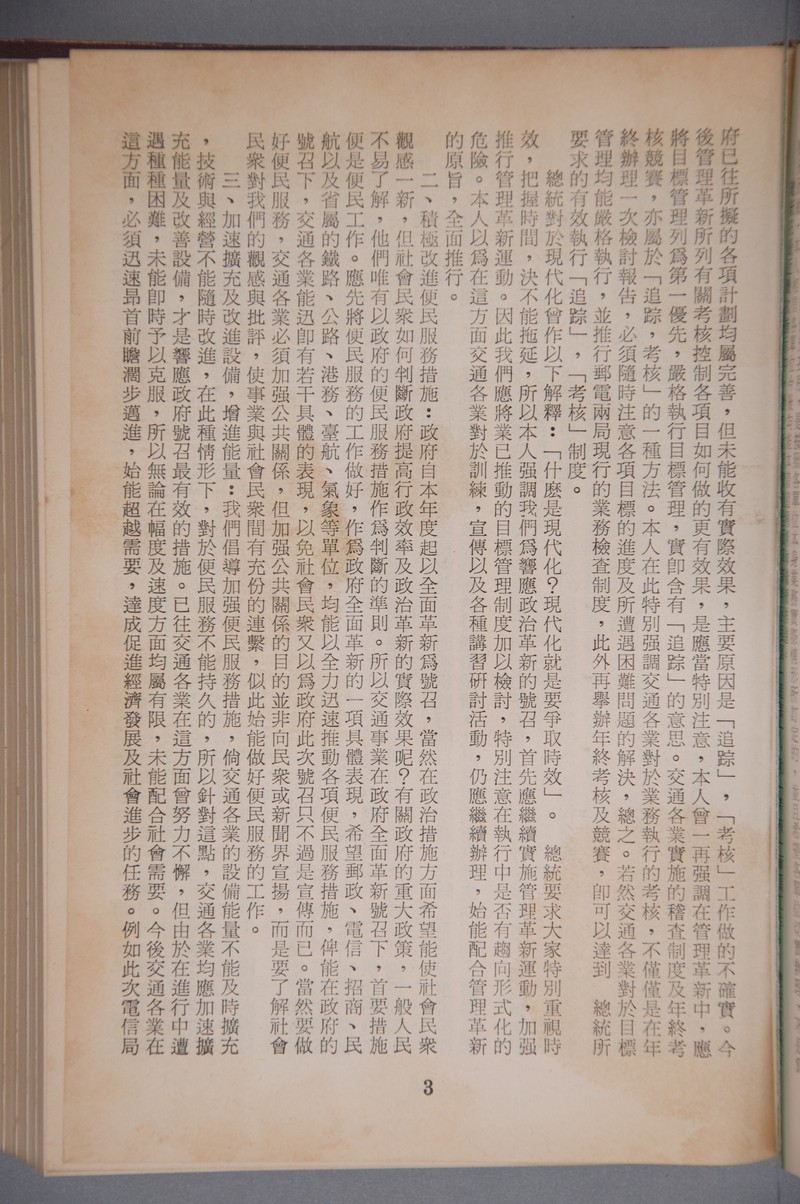 府已往所擬的各項計劃均屬完善，但未能收有實際效果，主要原因是「追踪」，「考核」工作做的不確實。今
後管理革新所列有關考核控制各項目如何做的更有效果，是應當特別注意，本人曾一再强調在管理革新中，應
將目標管理列爲第一優先，嚴格執行目標管理，實卽含有「追踪」的意思。交通各業實施的稽查制度及年終考
核競賽，亦屬於「追踪，考核」的一種方法。本人在此特別强調交通各業對於業務執行的考核，不僅僅是在年
終辦理一次檢討報告，必須隨時注意各項目標的進度及所遭遇困難問題的解決，總之。若然交通各業對於目標
管理均能嚴格執行，並推行郵電兩局現行的業務檢查制度，此外再舉辦年終考核及競賽，卽可以達到　總統所
要求的有效執行「追踪」，「考核」制度。
總統對於現代化曾作以下解釋：「什麽是現代化？現代化就是要爭取時效」。　總統要求大家特別重視時
效，把握時間，決不能拖延，所以本人强調我們爲響應政治革新的號召，首先應繼續實施管理革新運動，加强
推行管理革新運動。因此我們應將業已推動的目標管理制度加以檢討，特別注意在執行中是否有趨向形式化的
危險。本人以爲在這方面交通各業對於訓練，宣傳以及各種講習硏討活動，仍應繼續辦理，始能配合管理革新
的原旨，全面推行。
二、積極改進便民服務措施：政府自本年度起以全面革新爲號召，當然在政治措施方面希望能使社會民衆
觀感一新，但社會民衆如何判斷政府提高行政效率及政治革新的實際效果呢？有關政府的重大政策，一般人民
不易了解，他們唯有以政府的便民服務措施作爲判斷的準則。所以交通事業在政府全面革新號召下，首要措施
便是便民工作。應先將便民服務的工作做好，作爲政府全面革新的一項具體表現，希望郵政、電信、招商、民
航以及省屬的鐵路、公路、港務、臺航、氣象等單位，均能以全力迅速推動各項便民服務措施，俾能在政府的
號召下，交通各業能迅卽有若干具體的表現，以免社會民衆又以爲政府此次號召只不過是宣傳而已。當然要做
好便民服務，交通各業必須加强公共關係，但加强公共關係的目的並非向民衆或新聞界宣揚，而是要了解社會
民衆對我們的觀感與批評，使事業與社會民衆間有充份的連繫，似此始能做好便民服務的工作。
三、加速擴充及改進設備，增進能量：我們倡導加强便民服務措施，倘交通各業的設備能量不能及時擴充
，技術與經營不能隨時改進，在此種情形下，對於便民服務不能持久的，所以針對這點，交通各業均應加速擴
充能量及改善設備，才是響應政府號召最有效的措施。已往交通各業在這方面曾努力不懈，但由於在進行中遭
遇種種困難，未能卽時予以克服，所以無論在幅度及速度方面均屬有限，未能配合社會需要。今後交通各業在
這方面，必須迅速昂首前瞻濶步邁進，始能超越需要，達成促進經濟發展及社會進步的任務。例如此次電信局
3